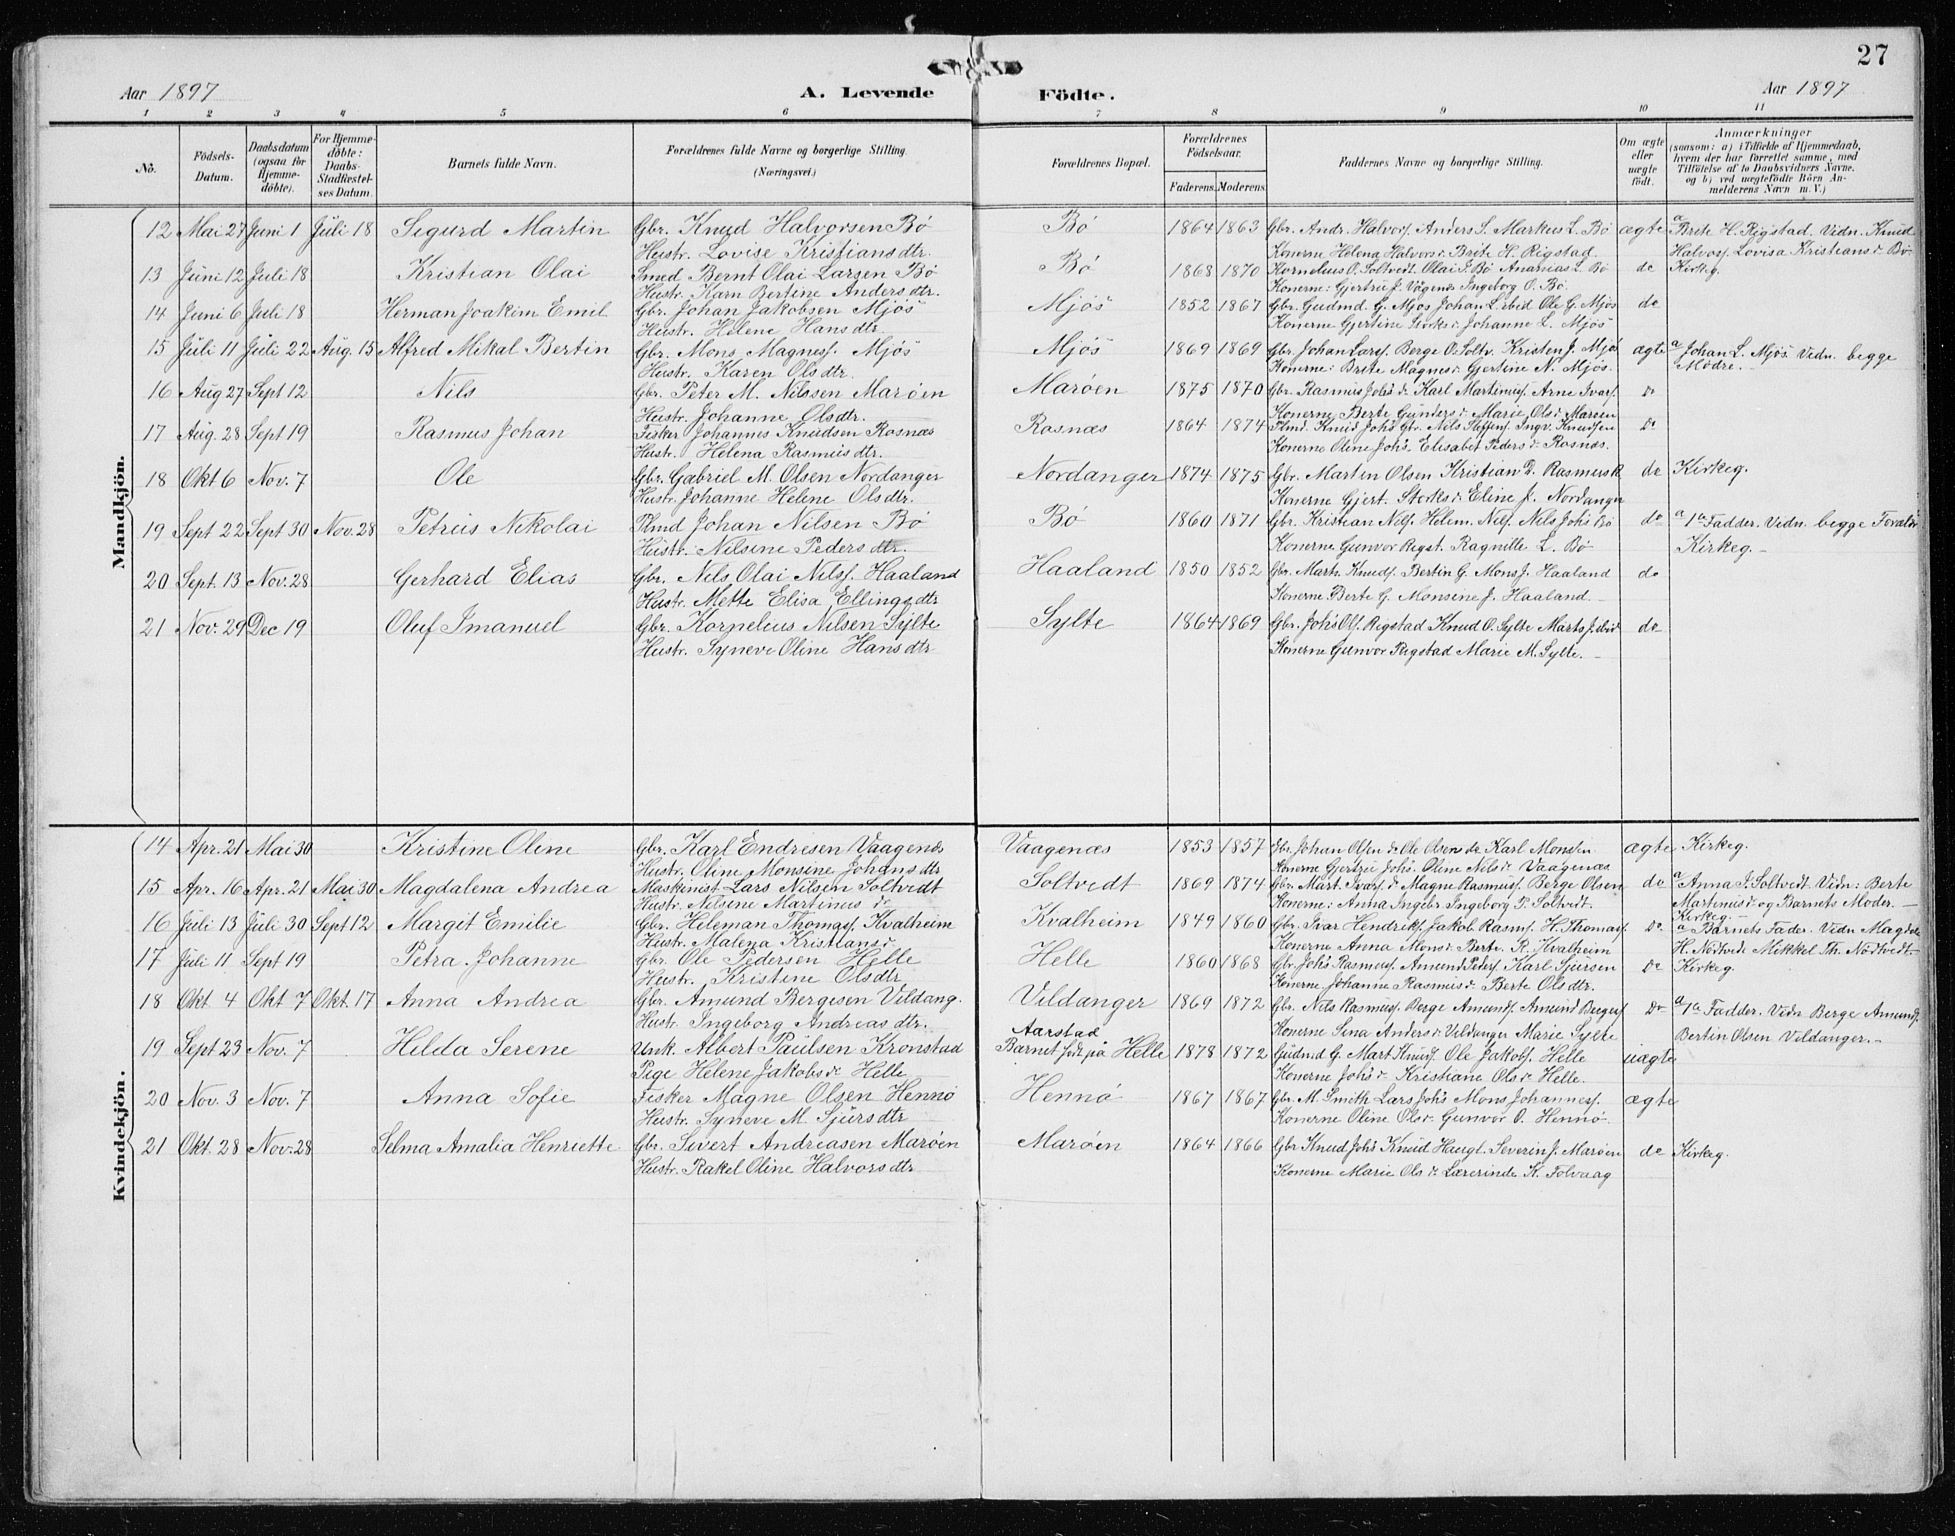 27
Aar 1897 A. Levende Födte. Aar 1897
1 2 3 4 5 6 7 8 9 10 11
No. Födsels-Datum. Daabsdatum (ogsaa for Hjemme-döbte). For Hjemme-döbte: Daabs-Stadfæstel-ses Datum. Barnets fulde Navn. Forældrenes fulde Navne og borgerlige Stilling. (Næringsvei.) Forældrenes Bopæl. Forældrenes Födselsaar. Faderens. Moderens. Faddernes Navne og borgerlige Stilling. Om ægte eller uægte födt. Anmærkninger (saasom: a) i Tilfælde af Hjemmedaab, hvem der har forrettet samme, med Tilföielse af to Daabsvidners Navne. og b) ved uægtefödte Börn An-melderens Navn m. V.)
Mandkjön.
12 Mai 27 Juni 1 Juli 18 Sigurd Martin Gbr. Knud Halvorsen Bö Bö 1864 1863 Gbr. Andr. Halvors. Anders S. Markus L. Bö ægte a Brite H. Rigstad. Vidn. Knud
Hustr. Lovise Kristiansdtr. Konerne Helena Halvorsd. Brite H. Rigstad Halvors. Lovisa Kristiansd. Bö.
13 Juni 12 Juli 18 Kristian Olai Smed Bernt Olai Larsen Bö Bö 1868 1870 Kornelius O. Soltvedt. Olai J. Bö Ananias L. Bö do Kirkeg.
Hustr. Karn Bertine Andersdtr. Konerne: Gjertrie J. Vågenes Ingeborg O. Bö.
14 Juni 6 Juli 18 Herman Joakim Emil Gbr. Johan Jakobsen Mjös Mjös 1852 1867 Gbr. Gudmd. G. Mjos Johan L. ibid Ole G. Mjös do
Hustr. Helene Hansdtr. Konerne Gjertine Storksd. Johanne L. Mjös
15 Juli 11 Juli 22 Aug. 15 Alfred Mikal Bertin Gbr. Mons Magness. Mjös Mjös 1869 1869 Gbr Johan Larss. Berge O. Soltv. Kristen J. Mjös ægte a Johan L. Mjös Vidn. begge
Hustr. Karen Olsdtr. Konerne: Brite Magnesd. Gjertine N. Mjös. Mödre.
16 Aug 27 Sept 12 Nils Gbr. Peter M. Nilssen Maröen Maröen 1875 1870 Gbr. Rasmus Johs. Karl Martinius. Arne Ivars. do
Hustr. Johanne Olsdtr. Konerne Berte Gundersd. Marie Olsd. Maröen
17 Aug. 28 Sept 19 Rasmus Johan Fisker Johannes Knudsen Rosnæs Rosnæs 1864 1874 Knud Johs. Nils Steffens. Ingv. Knudsen Do
Hustr. Helena Rasmusdtr. Konerne Oline Johs. Elisabet Pedersd. Rosnæs.
18 Okt 6 Nov. 7 Ole Gbr. Gabriel M. Olsen Nordanger Nordanger 1874 1875 Gbr. Martin Olsen Kristian D. Rasmus K do Kirkeg.
Hustr. Johanne Helene Olsdtr. Konerne Gjert. Storksd. Eline J. Nordanger
19 Sept 22 Sept 30 Nov. 28 Petrus Nikolai Johan Nilsen Bö Bö 1860 1871 Gbr. Kristian Nils. Helem. Nils. Nils Johs Bö do a 1a Fadder. Vidn. begge Foraldr
Hustr. Nilsine Pedersdtr. Konerne Gunvor Regst. Ragnille L. Bö Kirkeg.
20 Sept. 13 Nov. 28 Gerhard Elias Gbr. Nils Olai Nilss. Haaland Haaland 1850 1852 Gbr. Mart. Knuds. Bertin G. Mons J. Haaland do
Hustr. Mette Elisa Ellingsdtr Konerne Berte G. Monsine J. Haaland.
21 Nov. 29 Dec 19 Oluf Imanuel Gbr. Kornelius Nilsen Sylte Sylte 1864 1869 Gbr. Johs Ols. Rigstad Knud O. Sylte Marts J. ibid do
Hustr. Syneve Oline Hansdtr Konerne Gunvor Rigstad Marie M. Sylte.
Kvindekjön.
14 Apr. 21 Mai 30 Kristine Oline Gbr. Karl Endresen Vaagenes Vaagenæs 1853 1857 Gbr. Johan Olsn Ole Olsen Karl Monsen ægte Kirkeg.
Hustr. Oline Monsine Johansdtr Konerne Gjertrie Johs. Oline Nilsd. Vaagenæs
15 Apr. 16 Apr. 21 Mai 30 Magdalena Andrea Maskenist Lars Nilsen Soltvedt Soltvedt 1869 1874 Gbr. Mart. Ivars. Magne Rasmus. Berge Olsen do a Anna J. Soltvedt. Vidn: Berte
Hustr. Nilsine Martinusd. Konerne: Anna Ingebr. Ingeborg P. Soltvedt. Martinusd. og Barnets Moder.
Kirkeg.
16 Juli 13 Juli 30 Sept 12 Margit Emilie Gbr. Hileman Thomass. Kvalheim Kvalheim 1849 1860 Gbr. Ivar Hendriks. Jakob Rasms. H. Thomass. Do. a Barnets Fader. Vidn Magdele
Hustr. Malena Kristiansd. Konerne Anna Monsd. Berte R. Kvalheim H. Nödtvedt Mikkel Th. Nödtvedt.
17 Juli 11 Sept 19 Petra Johanne Gbr. Ole Pedersen Helle Helle 1860 1868 Gbr. Johs Rasmuss. Amund Peders. Karl Sjursen Do Kirkeg.
Hustr. Kristine Olsdtr Konerne Johanne Rasmusd. Berte Olsdtr.
18 Okt 4 Okt 7 Okt. 17 Anna Andrea Gbr. Amund Bergesen Vildang. Vildanger 1869 1872 Gbr. Nils Rasmus. Berge Amunds. Amund Berges. Do a 1a Fadder. Vidn Berge Amunds.
Hustr. Ingeborg Andreasdtr. Konerne Sina Andersd. Vildanger Marie Sylte Bertin Olsen Vildanger.
Aarstad
19 Sept 23 Nov. 7 Hilda Serene Unk. Albert Paulsen Kronstad Barnet födt på Helle 1878 1872 Gudmd G. Mart Knuds. Ole Jakobs. Helle uægte
Pige Helene Jakobsd. Helle Konerne Johs d. Kristiane Olsd. Helle.
20 Nov. 3 Nov. 7 Anna Sofie Fisker Magne Olsen Hennö Hennö 1867 1867 Gbr. M. Smith Lars Johs Mons Johanness. ægte
Hustr. Syneve M. Sjursdtr Konerne Oline Olsd. Gunvor O. Hennö.
21 Okt. 28 Nov. 28 Selma Amalia Henriette Gbr. Sivert Andreasen Maröen Maröen 1864 1866 Gbr Knud Johs Knud Haugl. Severin J. Maröen do Kirkeg.
Hustr. Rakel Oline Halvorsdtr Konerne Marie Olsd. Lærerinde K. Tolvaag